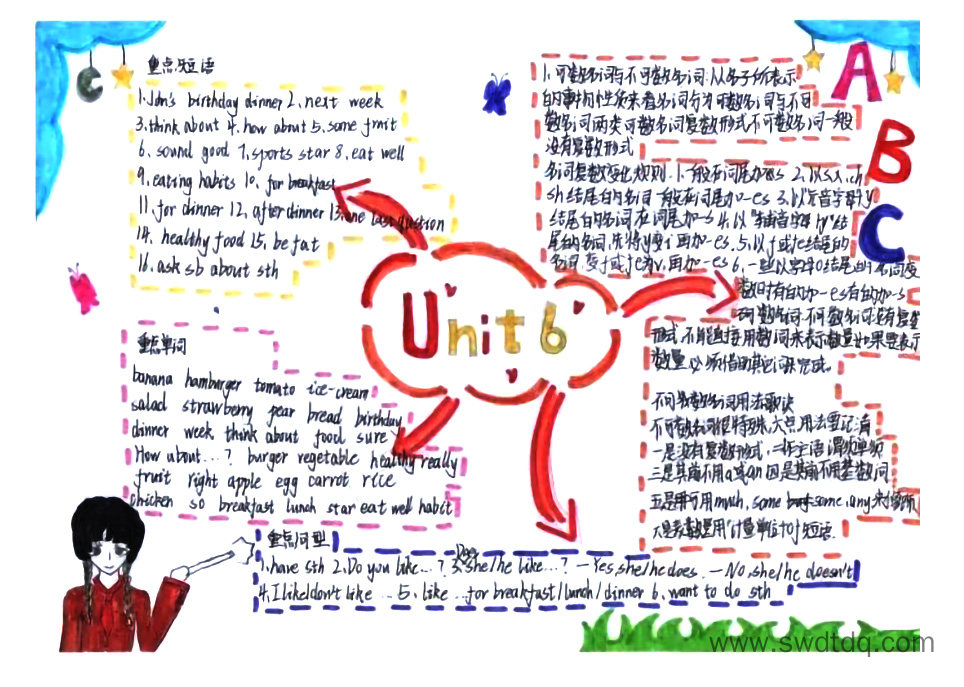 重点短语
1.Jan's birthday dinner 2.next week
3.think about 4.how about 5.some fruit
6.sound good 7.sports star 8.eat well
9.eating habits 10.for breakfast
11.for dinner 12.after dinner 13.one last question
14.healthy food 15.be fat
16.ask sb about sth
重点单词
banana hamburger tomato ice-cream
salad strawberry pear bread birthday
dinner week think about food sure
How about...? burger vegetable healthy really
fruit right apple egg carrot rice
chicken so breakfast lunch star eat well habit
Unit 6
A
B
C
C
1.可数名词与不可数名词:以名字所表示
的事物性质来看名词分为可数名词与不可
数名词两类可数名词复数形式不可数名词一般
没有复数形式
名词复数变化规则.1.一般在词尾加-s 2.以s,x,ch
sh结尾的名词一般在词尾加-es 3.以元音字母+y
结尾的名词在词尾加-s 4.以"辅音字母+y"结
尾的名词,先将y变i再加-es.5.以f或fe结尾的
名词变f或fe为v,再加-es 6.一些以字母o结尾的名词变
数时有的加-es有的加-s
不可数名词:不可数名词没有复数
形式不能直接用数词来表示数量如果要表示
数量必须借助其它词来完成。
不可数名词用法歌诀
不可数名词很特殊,六点用法要记清
一是没有复数形式,二作主语谓须单数
三是其前不用a或an四是其前不用基数词
五是可用much, some some,any来修饰
六是表数量用"计量单位+of"短语.
重点句型
1.have sth 2.Do you like...? 3.Does she/he like...? —Yes,she/he does. —No,she/he doesn't
4.I like/don't like ... 5.like...for breakfast/lunch/dinner 6.want to do sth
www.swdtdq.com